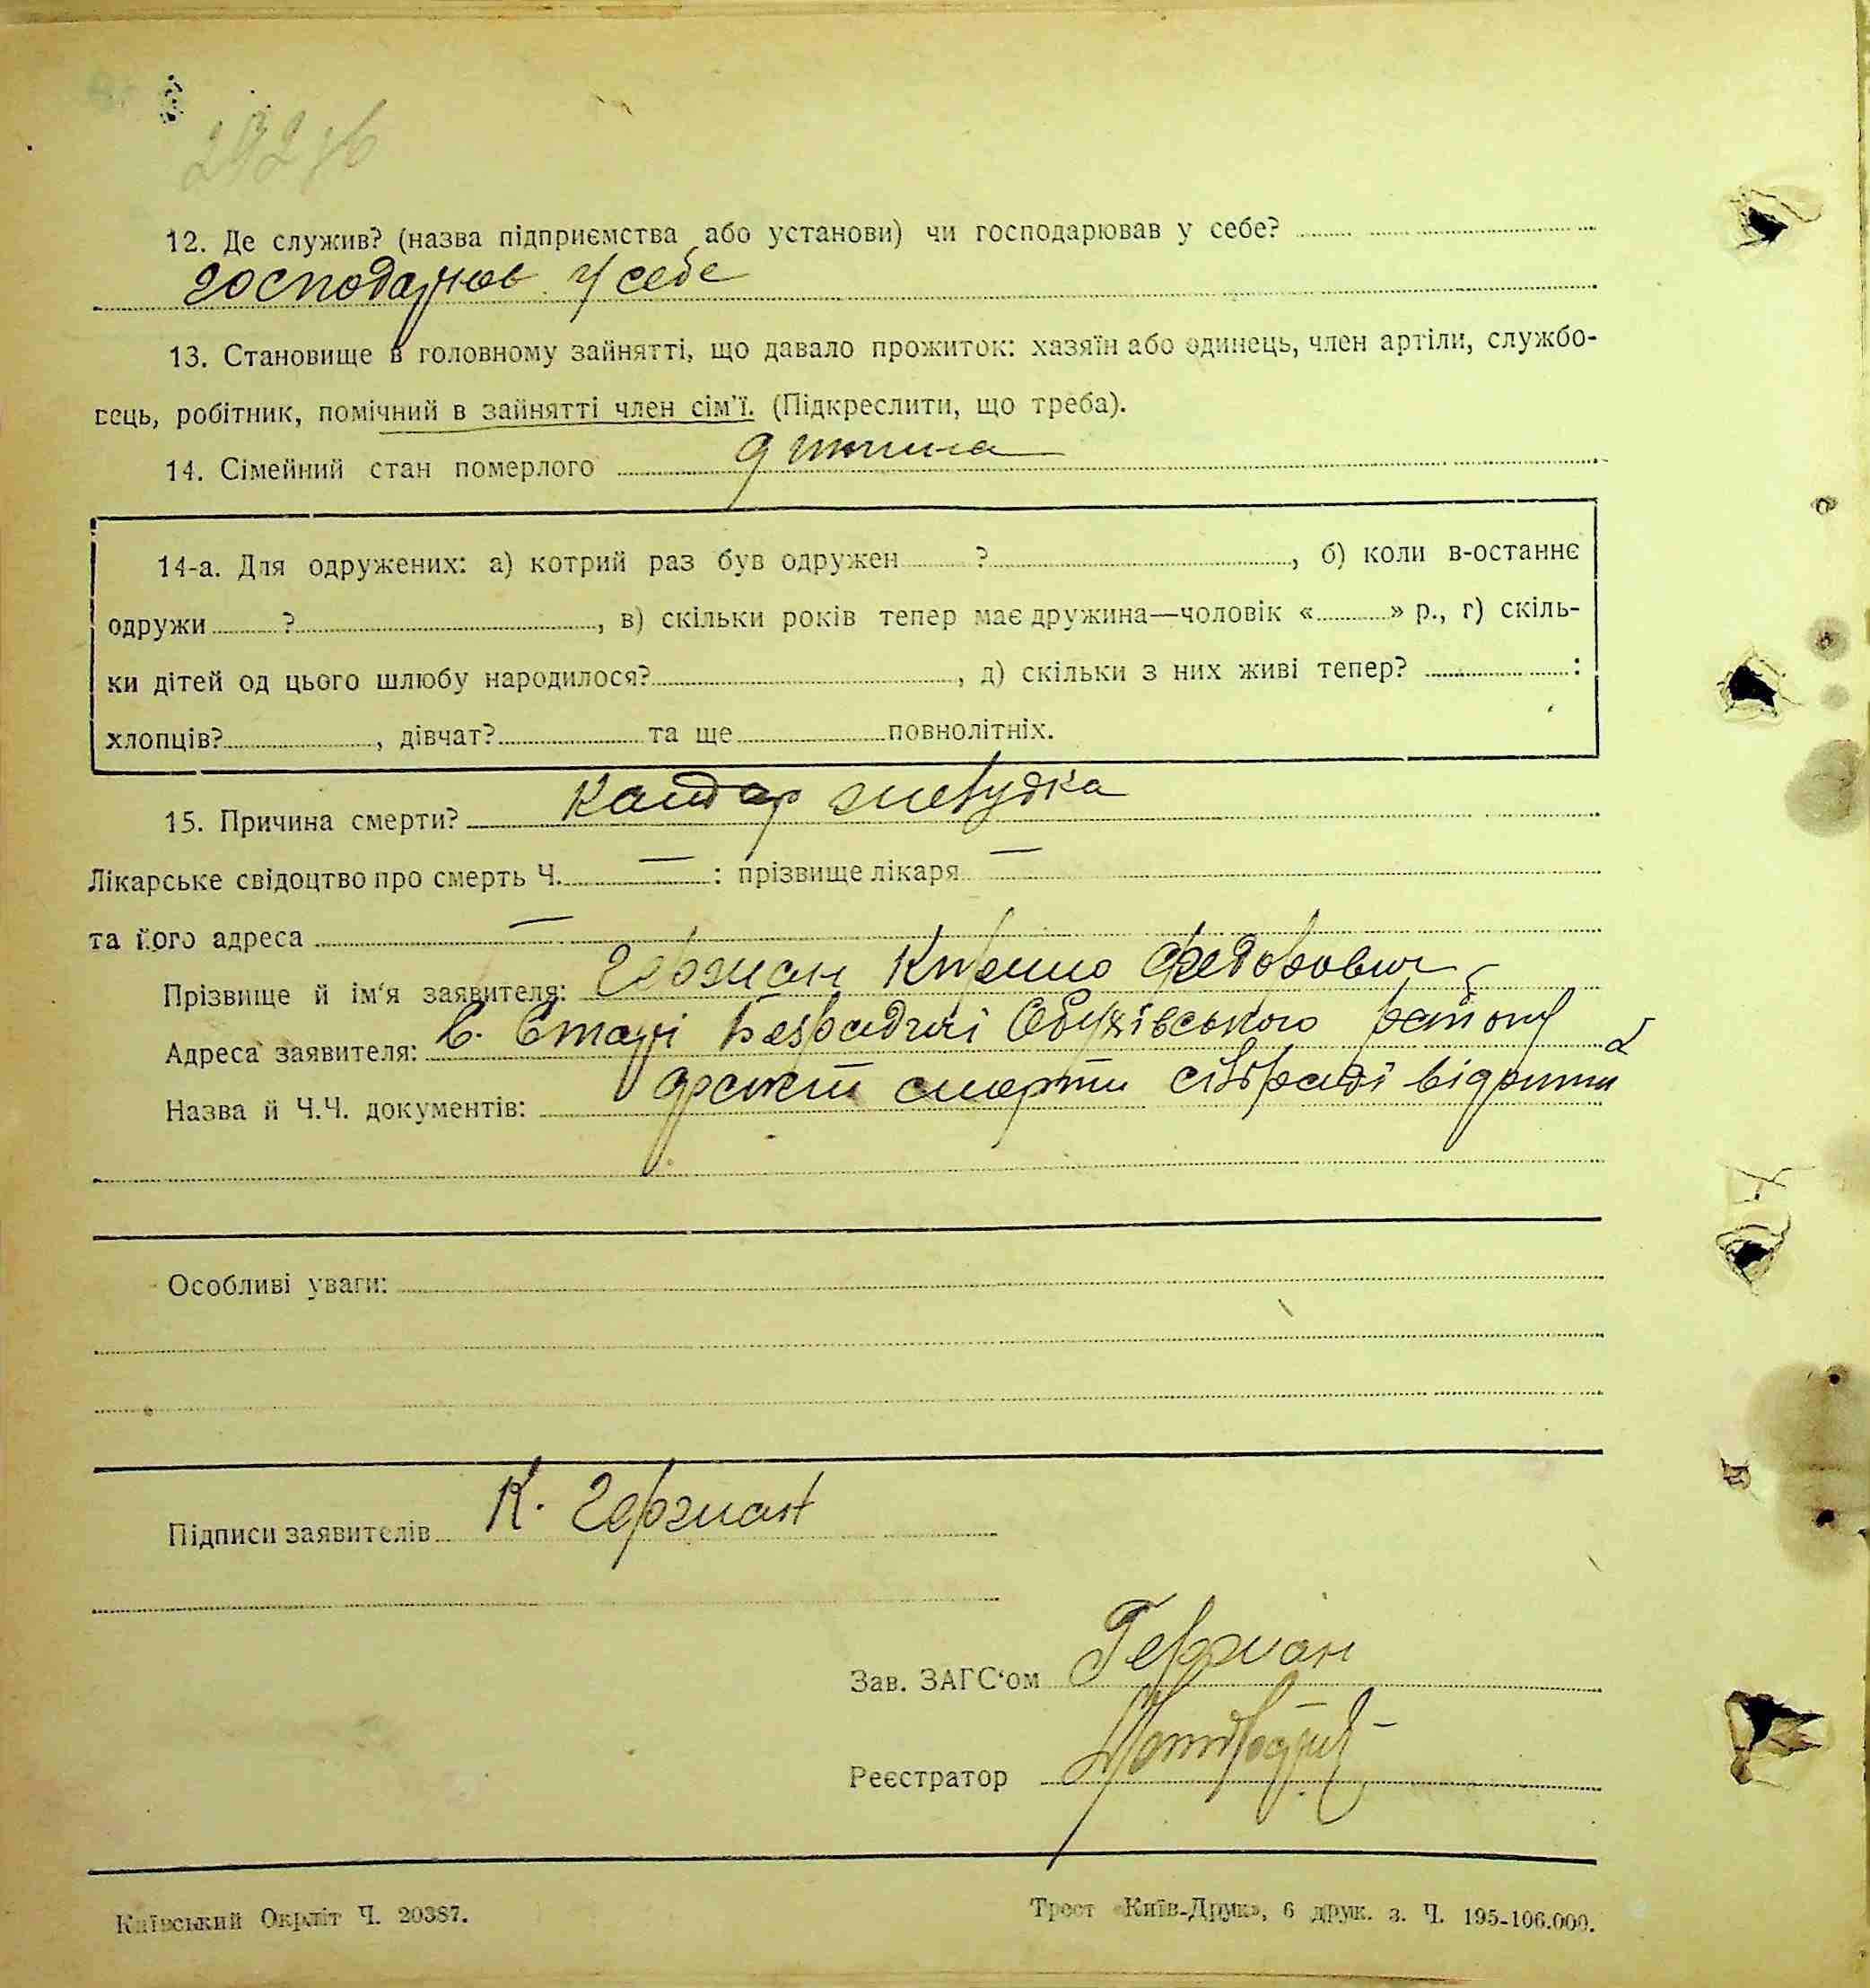 12. Де служив? (назва підприємства або установи) чи господарював у себе?
у себе
13. Становище в головному зайнятті, що давало прожиток: хазяїн або одинець, член артіли, службо-
вець, робітник, помічний в зайнятті член сім'ї. (Підкреслити, що треба).
14. Сімейний стан померлого дитина
14-а. Для одружених: а) котрий раз був одружен ? , б) коли в-останнє
одружи ? , в) скільки років тепер має дружина—чоловік « » р., г) скіль-
ки дітей од цього шлюбу народилося? , д) скільки з них живі тепер? :
хлопців? , дівчат? та ще повнолітніх.
15. Причина смерти?
Лікарське свідоцтво про смерть Ч. — : прізвище лікаря —
та його адреса —
Прізвище й ім'я заявителя: Герман Федорович
Адреса заявителя: с. Старі Безрадичі Обухівського району
Назва й Ч.Ч. документів: смерти
Особливі уваги:
Підписи заявителів К. Герман
Зав. ЗАГС'ом Герман
Реєстратор
Київський Окрліт Ч. 20387.
Трест «Київ-Друк», 6 друк. з. Ч. 195-106.000.